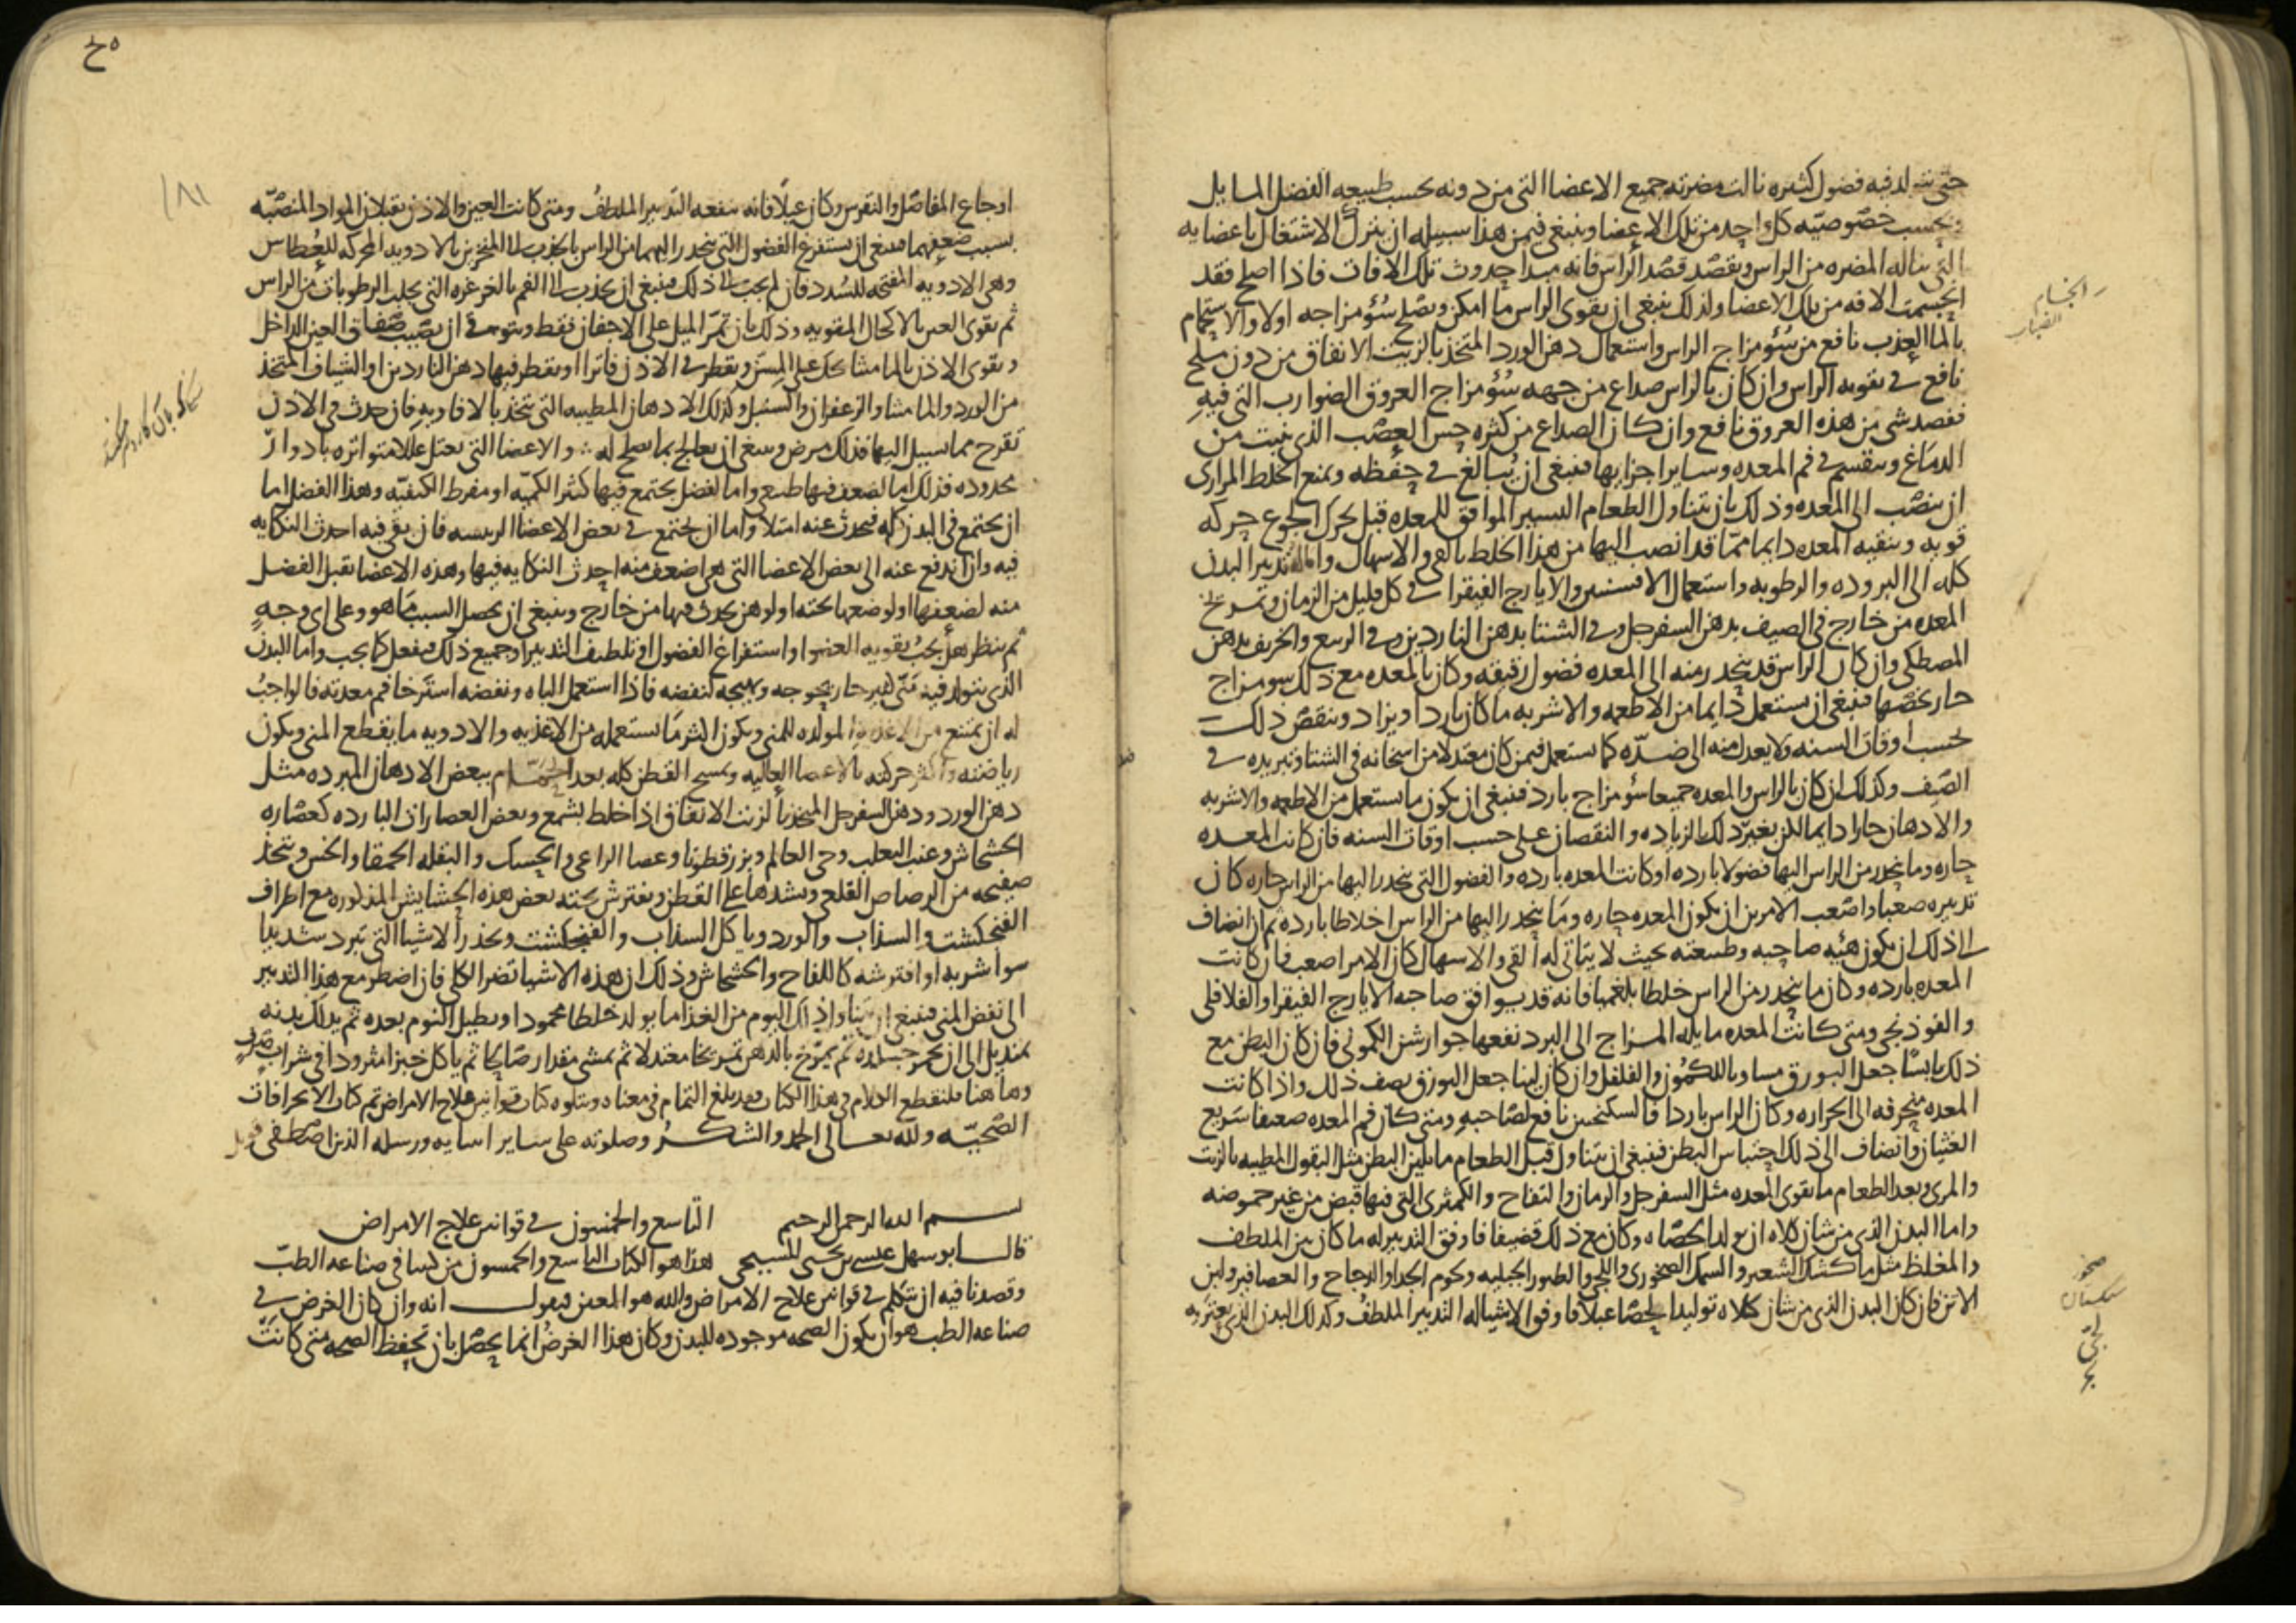 حتى تتولد فيه فضول كثيره نالت مضرته جميع الاعضا التى من دونه بحسب طبيعه الفضل المايل
وبحسب خصوصيه كل واحد من تلك الاعضا وينبغى فيمن هذا سبيله ان يترك الاشتغال باعضايه
التى تناله المضره من الراس ويقصد قصد الراس فانه مبدا حدوث تلك الافات فاذا اصلح فقد
انحسمت الافه من تلك الاعضا ولذلك ينبغى ان يقوى الراس ما امكن ويصلح سؤ مزاجه اولا والاستحمام
بالما العذب نافع من سؤ مزاج الراس واستعمال دهن الورد المتخذ بالزيت الانفاق من دون ملح
نافع فى تقويه الراس وان كان بالراس صداع من جهه سؤ مزاج العروق الضوارب التى فيه
ففصد شى من هذه العروق نافع وان كان الصداع من كثره حس العصب الذى ينبت من
الدماغ وينقسم فى فم المعده وساير اجزايها فينبغى ان يبالغ فى حفظه ويمنع الخلط المرارى
ان ينصب الى المعده وذلك بان يتناول الطعام اليسير الموافق للمعده قبل تحرك الجوع حركه
قويه وينقيه المعده دايما مما قد انصب اليها من هذا الخلط بالقى والاسهال واماله تدبير البدن
كله الى البروده والرطوبه واستعمال الافسنتين والايارج الفيقرا فى كل قليل من الزمان وتمريخ
المعده من خارج فى الصيف بدهن السفرجل وفى الشتا بدهن الناردين وفى الربيع والخريف بدهن
المصطكى وان كان الراس قد ينحدر منه الى المعده فضول رقيقه وكان بالمعده مع ذلك سو مزاج
حار يخصها فينبغى ان يستعمل دايما من الاطعمه والاشربه ما كان باردا ويزاد وينقص ذلك
بحسب اوقات السنه ولا يعدل منه الى ضده كما يستعمل فيمن كان معتدلا من اسخانه فى الشتا وتبريده فى
الصيف وكذلك ان كان بالراس والمعده جميعا سؤ مزاج بارد فينبغى ان يكون ما يستعمل من الاطعمه والاشربه
والادهان حارا دايما لكن بغير ذلك الزياده والنقصان على حسب اوقات السنه فان كانت المعده
حاره وما ينحدر من الراس اليها فضولا بارده او كانت المعده بارده والفضول التى ينحدر اليها من الراس حاره كان
تدبيره صعبا واصعب الامرين ان يكون المعده حاره وما ينحدر اليها من الراس اخلاطا بارده ثم ان انضاف
الى ذلك ان يكون هئيه صاحبه وطبيعته بحيث لا يتاتى له القى والاسهال كان الامر اصعب فان كانت
المعده بارده وكان ما ينحدر من الراس خلطا بلغميا فانه قد يوافق صاحبه الايارج الفيقرا والفلافلى
والفوذنجى ومتى كانت المعده مايله المزاج الى البرد نفعها جوارشن الكمونى فان كان البطن مع
ذلك يابسا جعل البورق مساويا للكمون والفلفل وان كان لينا جعل البورق نصف ذلك واذا كانت
المعده منحرفه الى الحراره وكان الراس باردا فالسكنجبين نافع لصاحبه ومتى كان فم المعده ضعيفا سريع
الغثيان وانضاف الى ذلك احتباس البطن فينبغى ان يتناول قبل الطعام ما يلين البطن مثل البقول المطيبه بالزيت
والمرى وبعد الطعام ما يقوى المعده مثل السفرجل والرمان والتفاح والكمثرى التى فيها قبض من غير حموضه
واما البدن الذى من شان كلاه ان يولد الحصاه وكان مع ذلك قضيفا فاوفق التدبير له ما كان بين الملطف
والمغلظ مثل ما كشك الشعير والسمك الصخورى واللجى والطيور الجبليه ولحوم الجدا والدجاج والعصافير ولبن
الاتن فان كان البدن الذى من شان كلاه توليد الحصا عبلا فاوفق الاشيا له التدبير الملطف وكذلك البدن الذى يعتريه
صخور
اوجاع المفاصل والنقرس وكان عبلا فانه ينفعه التدبير الملطف ومتى كانت العين والاذن يقبلان المواد المنصبه
بسبب ضعفهما فينبغى ان يستفرغ الفضول التى ينحدر اليهما من الراس بالجذب الى المنخرين بالادويه المحركه للعطاس
وهى الادويه المفتحه للسدد فان لم يجب الى ذلك فينبغى ان يجذب الى الفم بالغرغره التى يجلب الرطوبات من الراس
ثم يقوى العين بالاكحال المقويه وذلك بان تمر الميل على الاجفان فقط ويتوقى ان يصيب صفاق العين الداخل
ويقوى الاذن بالماميثا يحك على المسن ويقطر فى الاذن فاترا او يقطر فيها دهن الناردين او الشياف المتخذ
من الورد والماميثا والزعفران والسنبل وكذلك الادهان المطيبه التى تتخذ بالافاويه فان حدث فى الاذن
تقرح مما يسيل اليها فذلك مرض وينبغى ان يعالج بما يصلح له والاعضا التى يعتل عللا متواتره بادوار
محدوده فذلك اما لضعف فيها طبيعى واما لفضل يجتمع فيها كثير الكميه او مفرط الكيفيه وهذا الفضل اما
ان يجتمع فى البدن كله فيحدث عنه امتلا واما ان يجتمع فى بعض الاعضا الرييسه فان بقى فيه احدث النكايه
فيه وان اندفع عنه الى بعض الاعضا التى هى اضعف منه احدث النكايه فيها وهذه الاعضا يقبل الفضل
منه لضعفها او لوضعها تحته او لوهن يحدث فيها من خارج وينبغى ان يحصل السبب ما هو وعلى اى وجهٍ
ثم ينظر هل يجب تقويه العضو او استفراغ الفضول او تلطيف التدبير او جميع ذلك فيفعل كما يجب واما البدن
الذى يتولد فيه منى كثير حار يحوجه ويهيجه لنفضه فاذا استعمل الباه ونفضه استرخا فم معدته فالواجب
له ان يمتنع من الاغذيه المولده للمنى ويكون اكثر ما يستعمله من الاغذيه والادويه ما يقطع المنى ويكون
رياضته واكثر حركته بالاعضا العاليه ويمسح القطن كله بعد الحمام ببعض الادهان المبرده مثل
دهن الورد ودهن السفرجل المتخذ بالزيت الانفاق اذا خلط بشمع وبعض العصارات البارده كعصاره
الخشخاش وعنب الثعلب وحى العالم وبزر قطونا وعصا الراعى والحسك والبقله الحمقا والخس ويتخذ
صفيحه من الرصاص القلعى ويشدها على القطن ويفترش تحته بعض هذه الحشايش المذكوره مع اطراف
الفنجنكشت والسذاب والورد وياكل السذاب والفنجنكشت ويحذر الاشيا التى تبرد شديدا
سوا شربه او افترشه كاللفاح والخشخاش وذلك ان هذه الاشيا تضر الكلى فان اضطر مع هذا التدبير
الى نفض المنى فينبغى ان يتناول ذلك اليوم من الغذا ما يولد خلطا محمودا ويطيل النوم بعده ثم يدلك بدنه
بمنديل الى ان يحمر جسده ثم يمرخ بالدهن تمريخا معتدلا ثم يمشى مقدارا صالحا ثم ياكل خبزا مثرودا فى شراب صرف
وهاهنا فلنقطع الكلام فى هذا الكتاب فقد بلغ التمام فى معناه ويتلوه كتاب قوانين علاج الامراض تم كتاب الانحرافات
الصحيه ولله تعالى الحمد والشكر وصلوته على ساير انبيايه ورسله الذين اصطفى
بسم الله الرحمن الرحيم التاسع والخمسون فى قوانين علاج الامراض
قال ابو سهل عيسى بن يحيى المسيحى هذا هو الكتاب التاسع والخمسون من كتبنا فى صناعه الطب
وقصدنا فيه ان نتكلم فى قوانين علاج الامراض والله هو المعين فيقول انه وان كان الغرض فى
صناعه الطب هو ان يكون الصحه موجوده للبدن وكان هذا الغرض انما يحصل بان تحفظ الصحه متى كانت
١٨١